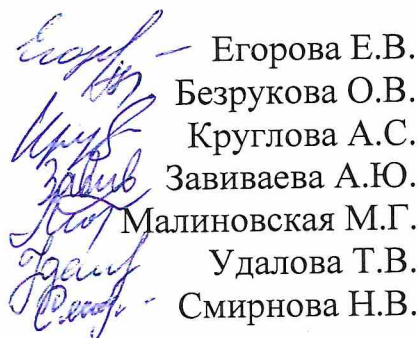 Егорова Е.В.
Безрукова О.В.
Круглова А.С.
Завиваева А.Ю.
Малиновская М.Г.
Удалова Т.В.
Смирнова Н.В.